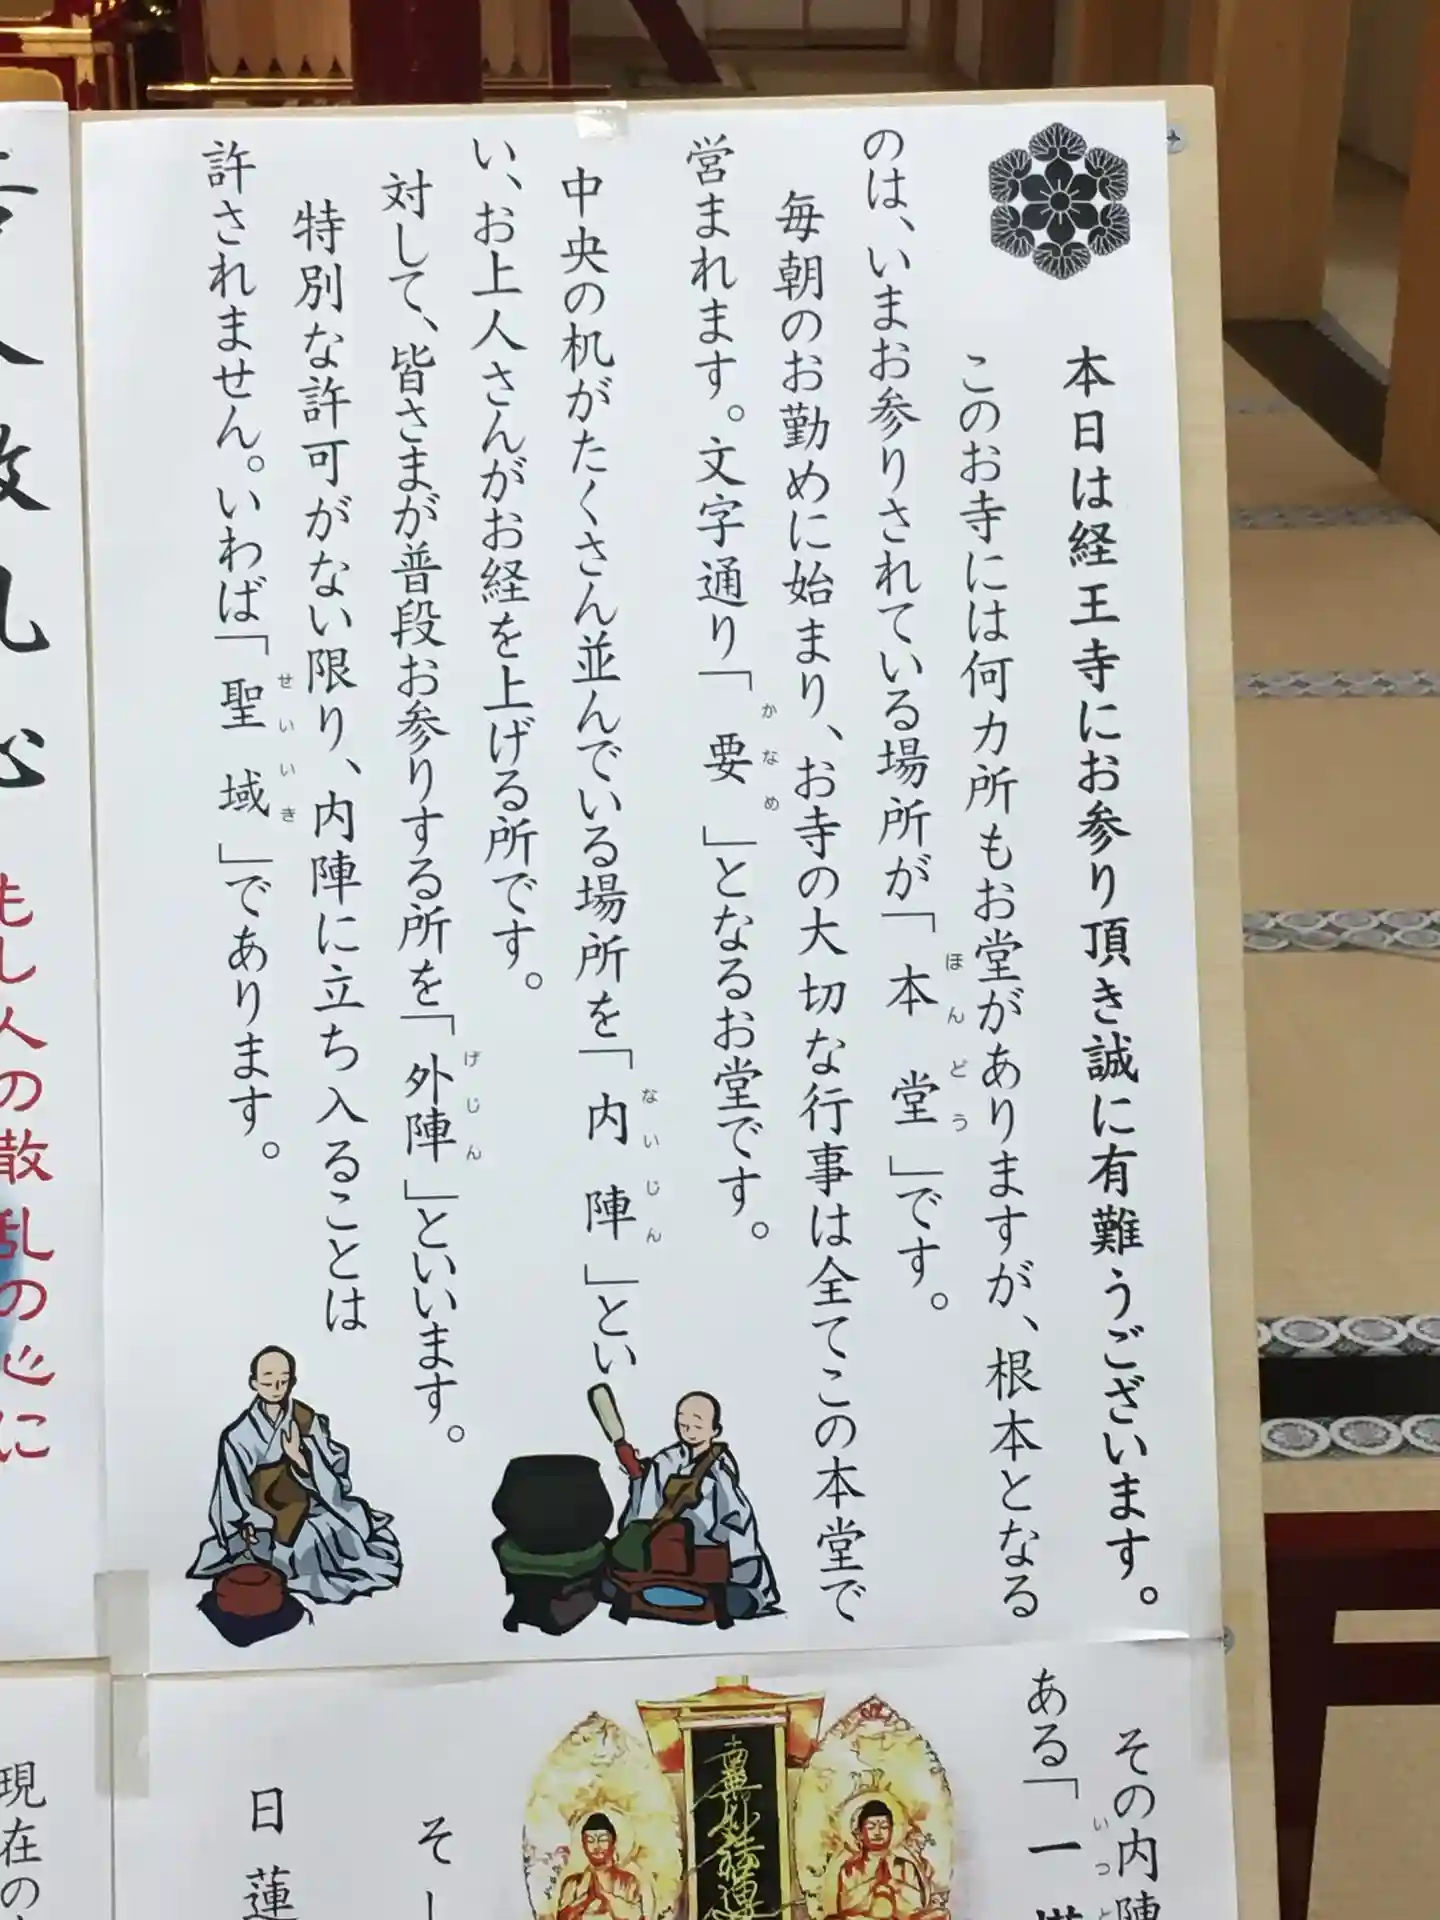 本日は経王寺にお参り頂き誠に有難うございます。
このお寺には何カ所もお堂がありますが、根本となる
のは、いまお参りされている場所が「本堂」です。
ほんどう
毎朝のお勤めに始まり、お寺の大切な行事は全てこの本堂で
営まれます。文字通り「要」となるお堂です。
かなめ
中央の机がたくさん並んでいる場所を「内陣」とい
ないじん
い、お上人さんがお経を上げる所です。
対して、皆さまが普段お参りする所を「外陣」といいます。
げじん
特別な許可がない限り、内陣に立ち入ることは
許されません。いわば「聖域」であります。
せいいき
その内陣
ある「一
いっ
そ
日蓮
もし人の散乱の心に
現在の